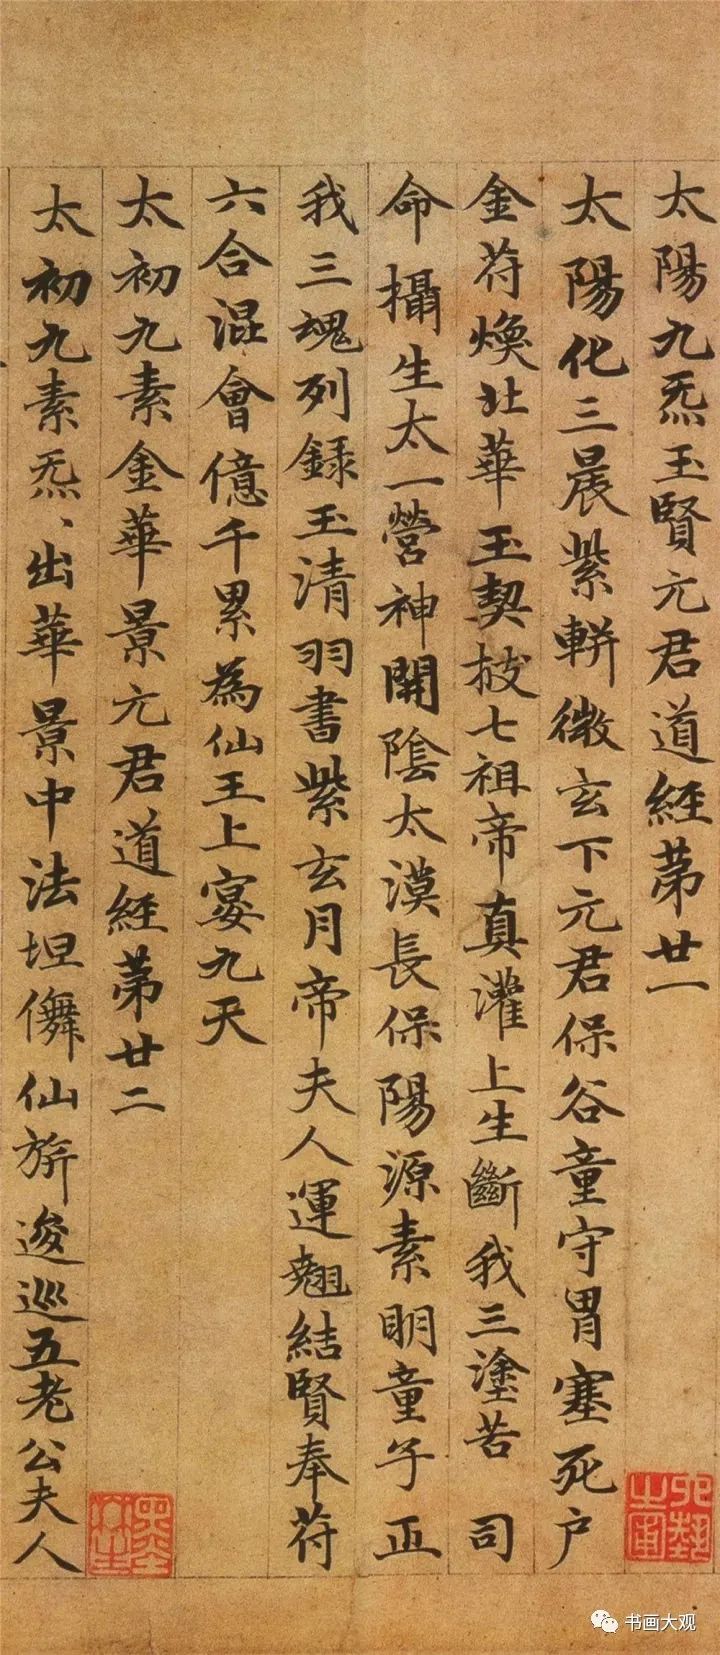 太陽九炁玉賢元君道經苐廿一
太陽化三晨紫軿微玄下元君保谷童守胃塞死户
金苻煥北華玉契拔七祖帝真灌上生斷我三塗苦司
命攝生太一營神開陰太漠長保陽源素明童子正
我三魂列録玉清羽書紫玄月帝夫人運翹結賢奉苻
六合混會億千累為仙王上宴九天
太初九素金華景元君道經苐廿二
太初九素炁〻出華景中法坦儛仙旂逡巡五老公夫人
书画大观